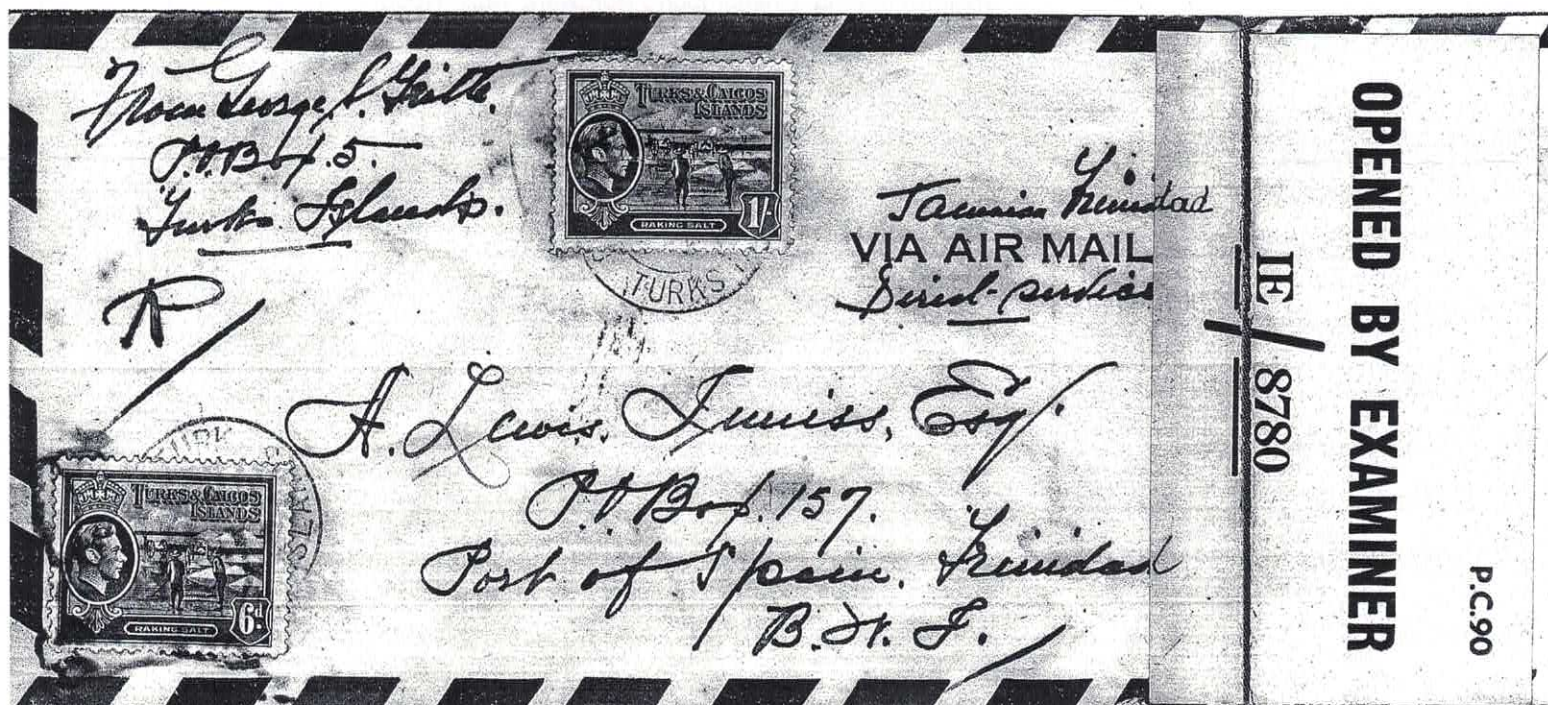 From George
P.O. Box. 5.
Turks Islands.
TURKS & CAICOS
ISLANDS
RAKING SALT
1/-
TURKS I
Trinidad
VIA AIR MAIL
Direct-service
R
A. Lewis. Inniss, Esq.
P.O Box. 157.
Port of Spain. Trinidad
B. W. I.
TURK
TURKS & CAICOS
ISLANDS
RAKING SALT
6d
OPENED BY EXAMINER
IE / 8780
P.C.90